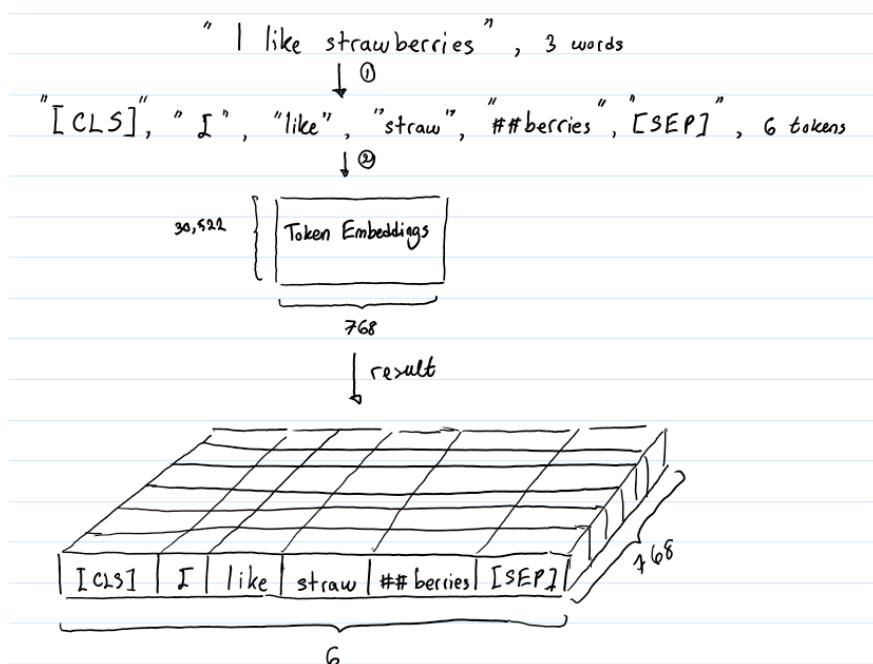 "I like strawberries", 3 words
①
"[CLS]", "I", "like", "straw", "##berries", "[SEP]", 6 tokens
②
30,522
Token Embeddings
768
result
[CLS] I like straw ##berries [SEP]
768
6